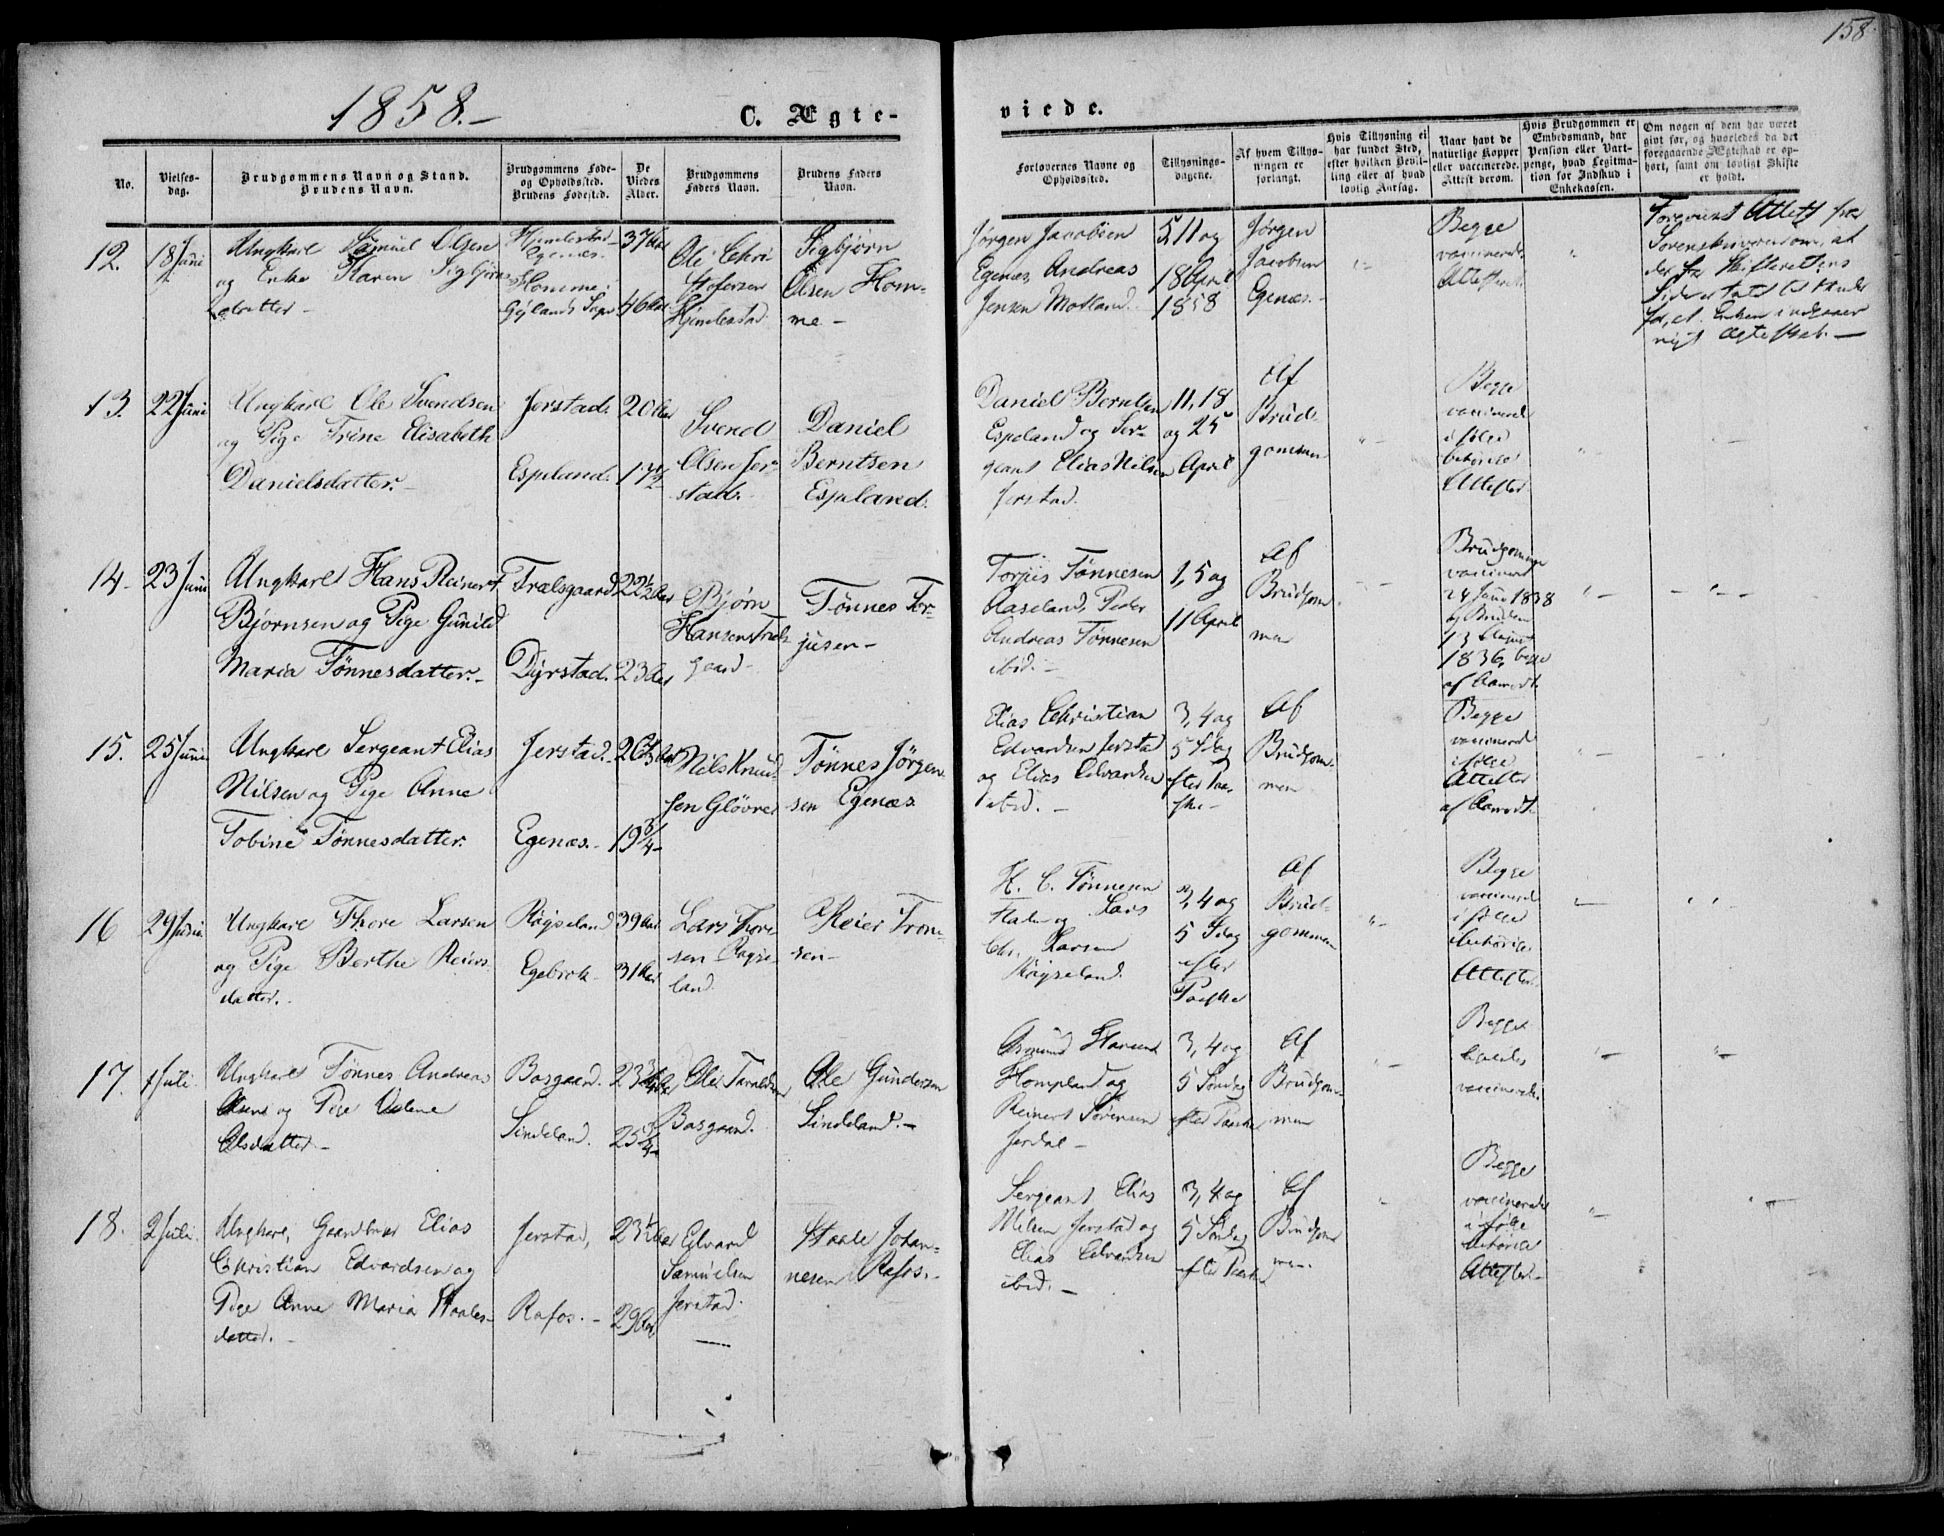 158.
1858.-
C. Ægte-
viede.
No.
Vielses-
dag.
Brudgommens Navn og Stand.
Brudens Navn.
Brudgommens Føde-
og Opholdssted.
Brudens Fødested.
De
Viedes
Alder.
Brudgommens
Faders Navn.
Brudens Faders
Navn.
Forlovernes Navne og
Opholdssted.
Tillysnings-
dagene.
Af hvem Tillys-
ningen er
forlangt.
Hvis Tillysning ei
har fundet Sted,
efter hvilken Bevil-
ling eller af hvad
lovlig Aarsag.
Naar havt de
naturlige Kopper
eller vaccinerede.
Attest derom.
Hvis Brudgommen er
Embedsmand, har
Pension eller Vart-
penge, hvad Legitima-
tion for Indskud i
Enkekassen.
Om nogen af dem har været
gift før, og hvorledes da det
foregaaende Ægteskab er op-
hørt, samt om lovligt Skifte
er holdt.
12.
18 Juni
Ungkarl Samuel Olsen
og Enke Karen Sigbjørns
datter -
Egenæs.
Homme i
Gylands Sogn
37 Aar
46 Aar
Ole Chri
stofersen
Sigbjørn
Olsen Hom-
me -
Jørgen Jacobsen
Egenæs, Andreas
Jensen Motland.
5, 11 og
18 April
1858
Jørgen
Jacobsen
Egenæs. -
Begge
vaccinerede
Foreviist Attest fra
Sorenskriveren om, at
der fra Skifterettens
Side er Intet til Hinder
for, at Enken indgaaer
nyt Ægteskab. -
13.
22 Juni
Ungkarl Ole Svendsen
og Pige Trine Elisabeth
Danielsdatter. -
Jerstad.
Espeland.
20 Aar
17 1/2
Svend
Olsen Jer-
stad.
Daniel
Berntsen
Espeland.
Daniel Berntsen
Espeland og Ser-
geant Elias Nilsen
Jerstad.
11, 18
og 25
April
Af
Brud-
gommen
Begge
vaccinerede
ifølge
behørige
Attester
14.
23 Juni
Ungkarl Hans Reinert
Bjørnsen og Pige Gunild
Maria Tønnesdatter. -
Trælsgaard
Dyrstad.
22 1/2 Aar
23 Aar
Bjørn
Hansen Træls-
gaard -
Tønnes Tor-
jusen -
Torjus Tønnesen
Aaseland, Peder
Andreas Tønnesen
ibid. -
1, 5 og
11 April
Af
Brudgom-
men
Brudgommen
vaccineret
24 Juni 1838
og Bruden
13 August
1836, begge
af Aamodt.
15.
25 Juni
Ungkarl Sergeant Elias
Nilsen og Pige Anne
Tobine Tønnesdatter.
Jerstad.
Egenæs. -
19 3/4
Nils Knud-
sen Gløvre
Tønnes Jørgen-
sen Egenæs
Elias Christian
Edvardsen Jerstad
og Elias Edvardsen
ibid. -
3, 4 og
5 Sdag
efter Paa-
ske -
Af
Brudgom-
men
Begge
vaccinerede
ifølge
Attester
af Aamodt.
16
29 Juni
Ungkarl Thore Larsen
og Pige Berthe Reiers-
datter.
Røgseland
Egebrok -
39 Aar
31 Aar
Lars Thore
sen Røgse-
land.
Reier Tron-
sen -
H. C. Tønnesen
og Lars
Chr. Larsen
Røgseland.
3, 4 og
5 Sdag
efter
Paaske
Af
Brud-
gommen
Begge
vaccinerede
ifølge
behørige
Attester.
17.
1 Juli.
Ungkarl Tønnes Andreas
Olsen og Pige Velene
Olsdatter. -
Bosgaard.
Sindeland.
23 3/4 Aar
25 3/4
Ole Taraldsen
Bosgaard.
Ole Gundersen
Sindeland. -
Hompland og
Reinert Sørensen
Jerdal -
3, 4 og
5 Søndag
efter Paaske
Af
Brudgom-
men
Begge
vaccinerede.
18.
2 Juli.
Ungkarl, Gaardbruger Elias
Christian Edvardsen og
Pige Anne Maria Staales-
datter. -
Jerstad,
Rafos. -
23 1/2 Aar
29 Aar
Edvard
Samuelsen
Jerstad.
Staale Johan-
nesen Rafos. -
Sergeant Elias
Nilsen Jerstad og
Elias Edvardsen
ibid. -
3, 4 og
5 Søndag
efter Paaske
Af
Brudgom-
men.
Begge
vaccinerede
ifølge
behørige
Attester. -